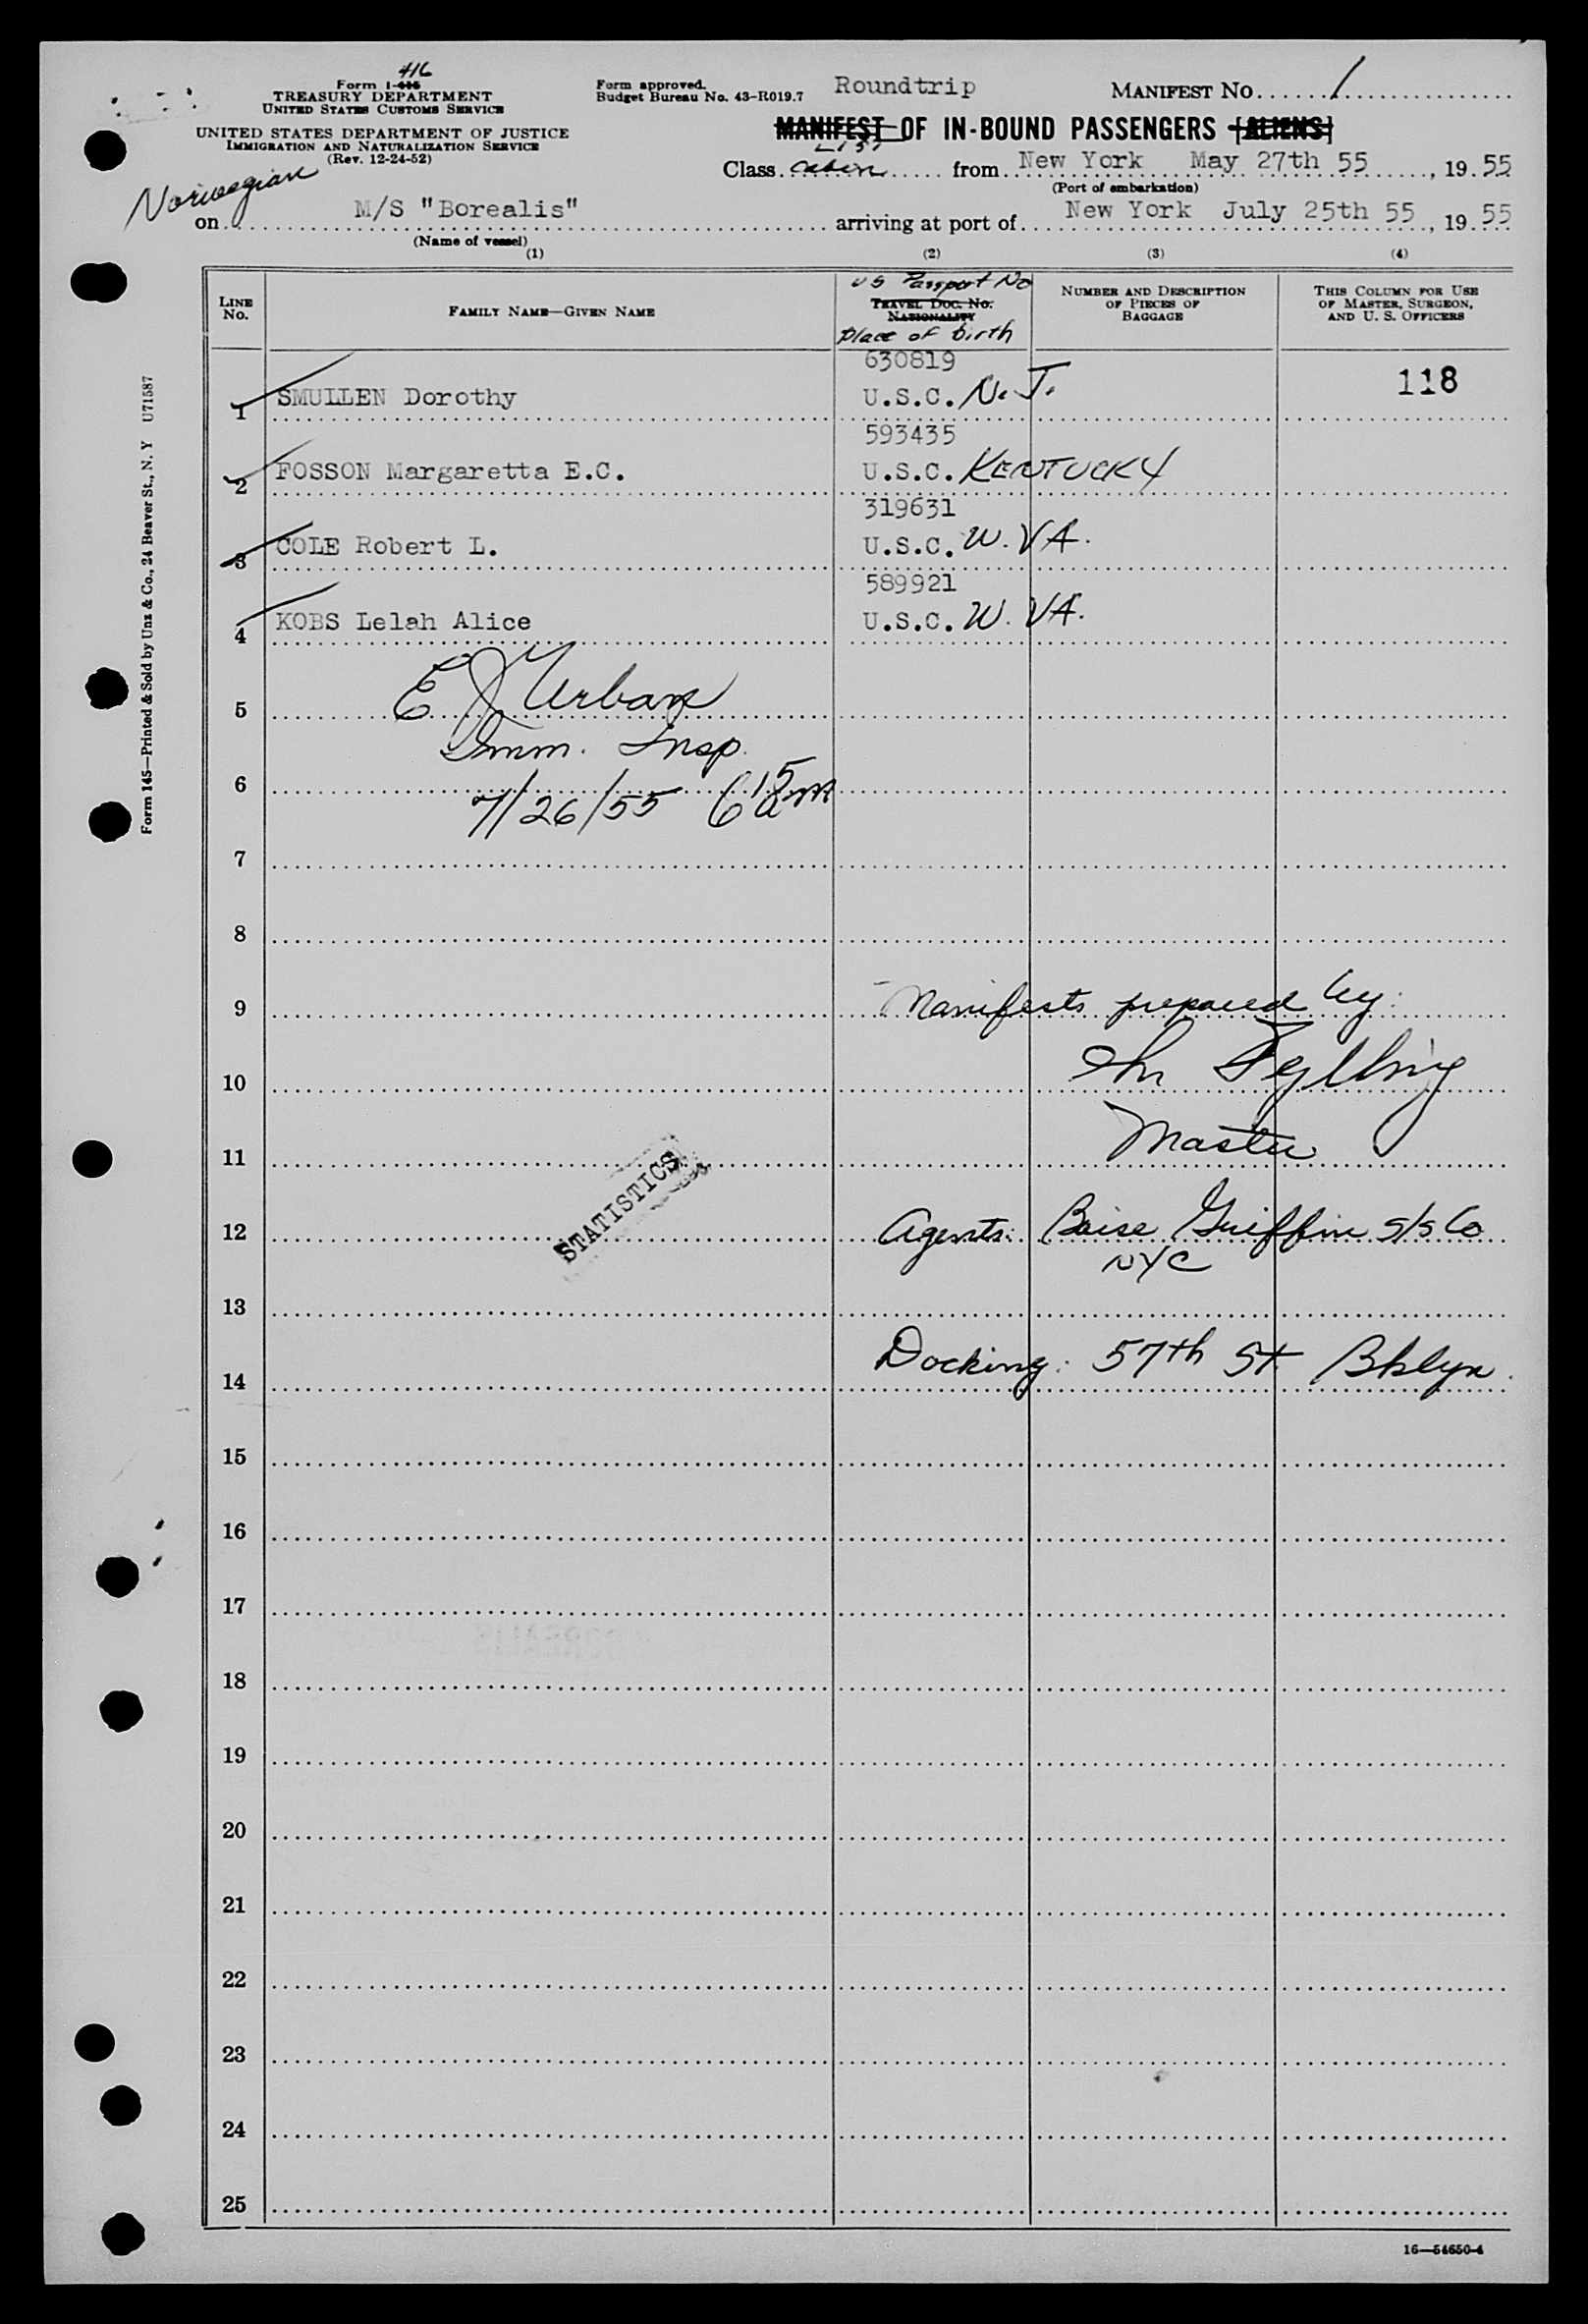 416
Form I-
TREASURY DEPARTMENT
UNITED STATES CUSTOMS SERVICE
UNITED STATES DEPARTMENT OF JUSTICE
IMMIGRATION AND NATURALIZATION SERVICE
(Rev. 12-24-52)
Form approved.
Budget Bureau No. 43-R019.7
Roundtrip
MANIFEST NO. 1
MANIFEST OF IN-BOUND PASSENGERS [ALIENS]
LIST
Class cabin from New York May 27th 55, 19 55
(Port of embarkation)
Norwegian
on M/S "Borealis" arriving at port of New York July 25th 55, 19 55
(Name of vessel)
(1) (2) (3) (4)
LINE No.
FAMILY NAME—GIVEN NAME
US Passport No
TRAVEL DOC. NO.
NATIONALITY
Place of birth
NUMBER AND DESCRIPTION OF PIECES OF BAGGAGE
THIS COLUMN FOR USE OF MASTER, SURGEON, AND U. S. OFFICERS
630819
1 SMULLEN Dorothy U.S.C. N.J. 118
593435
2 FOSSON Margaretta E.C. U.S.C. KENTUCKY
319631
3 COLE Robert L. U.S.C. W. VA.
589921
4 KOBS Lelah Alice U.S.C. W. VA.
5 E J Urban
Imm. Insp.
6
7/26/55 6 15 am
7
8
9 Manifests prepared by:
10 Fylling
11 Master
12 Agents: Boise Griffin s/s Co
NYC
13
14 Docking: 57th St Bklyn.
15
16
17
18
19
20
21
22
23
24
25
STATISTICS
Form 145—Printed & Sold by Unz & Co., 24 Beaver St., N. Y U71587
16—54650-4